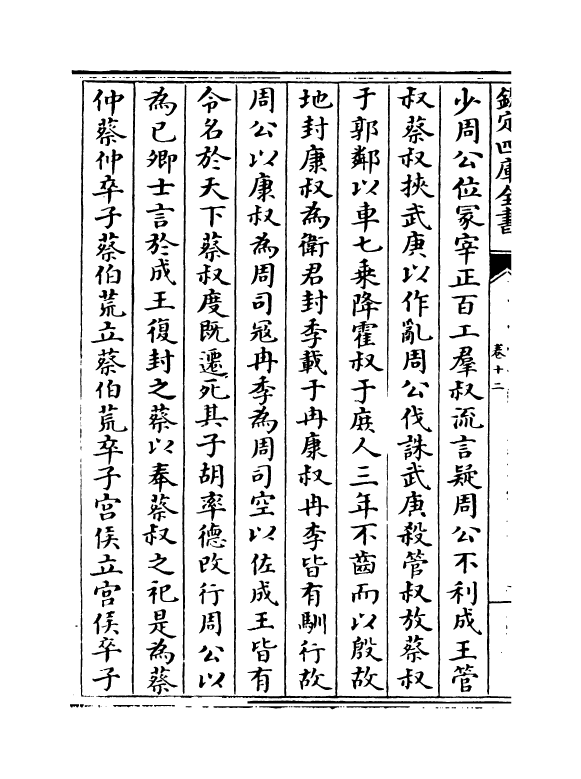 欽定四庫全書
卷十二
少周公位冡宰正百工羣叔流言疑周公不利成王管
叔蔡叔挾武庚以作亂周公伐誅武庚殺管叔放蔡叔
于郭鄰以車七乗降霍叔于庻人三年不齒而以殷故
地封康叔為衛君封季載于冉康叔冉季皆有馴行故
周公以康叔為周司冦冉季為周司空以佐成王皆有
令名於天下蔡叔度既遷死其子胡率德改行周公以
為已卿士言於成王復封之蔡以奉蔡叔之祀是為蔡
仲蔡仲卒子蔡伯荒立蔡伯荒卒子宫侯立宫侯卒子